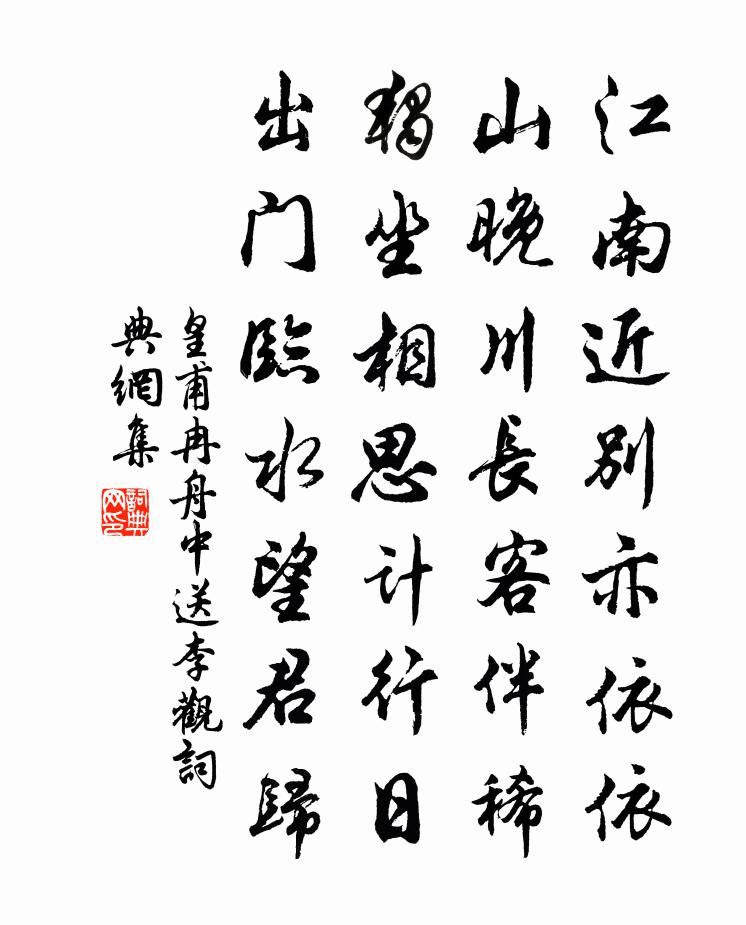 江南近別亦依依
山晚川長客伴稀
獨坐相思计行日
出门臨水望君歸
皇甫冉舟中送李觀詞
典網集
詞典
网印